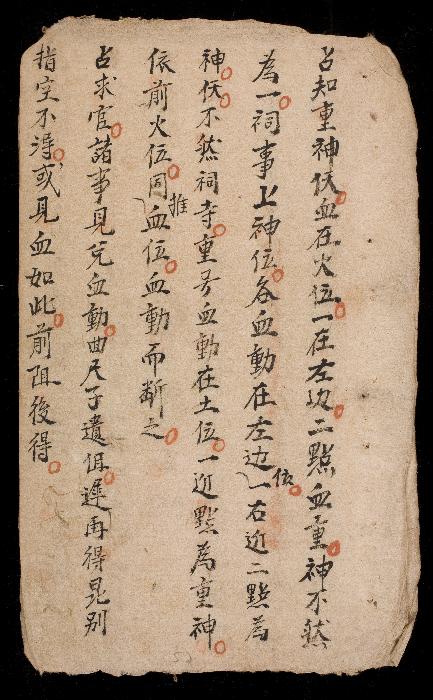 占知重神伏血在火位一在左边二點血重神不然
為一祠事上神位各血動在左边位一右近二點為
神伏不然祠寺重号血動在土位一近點為重神
依前火位同推血位血動而断之
占求官諸事見克血動曲尺子遺但遲再得見别
指空不得或見血如此前阻後得